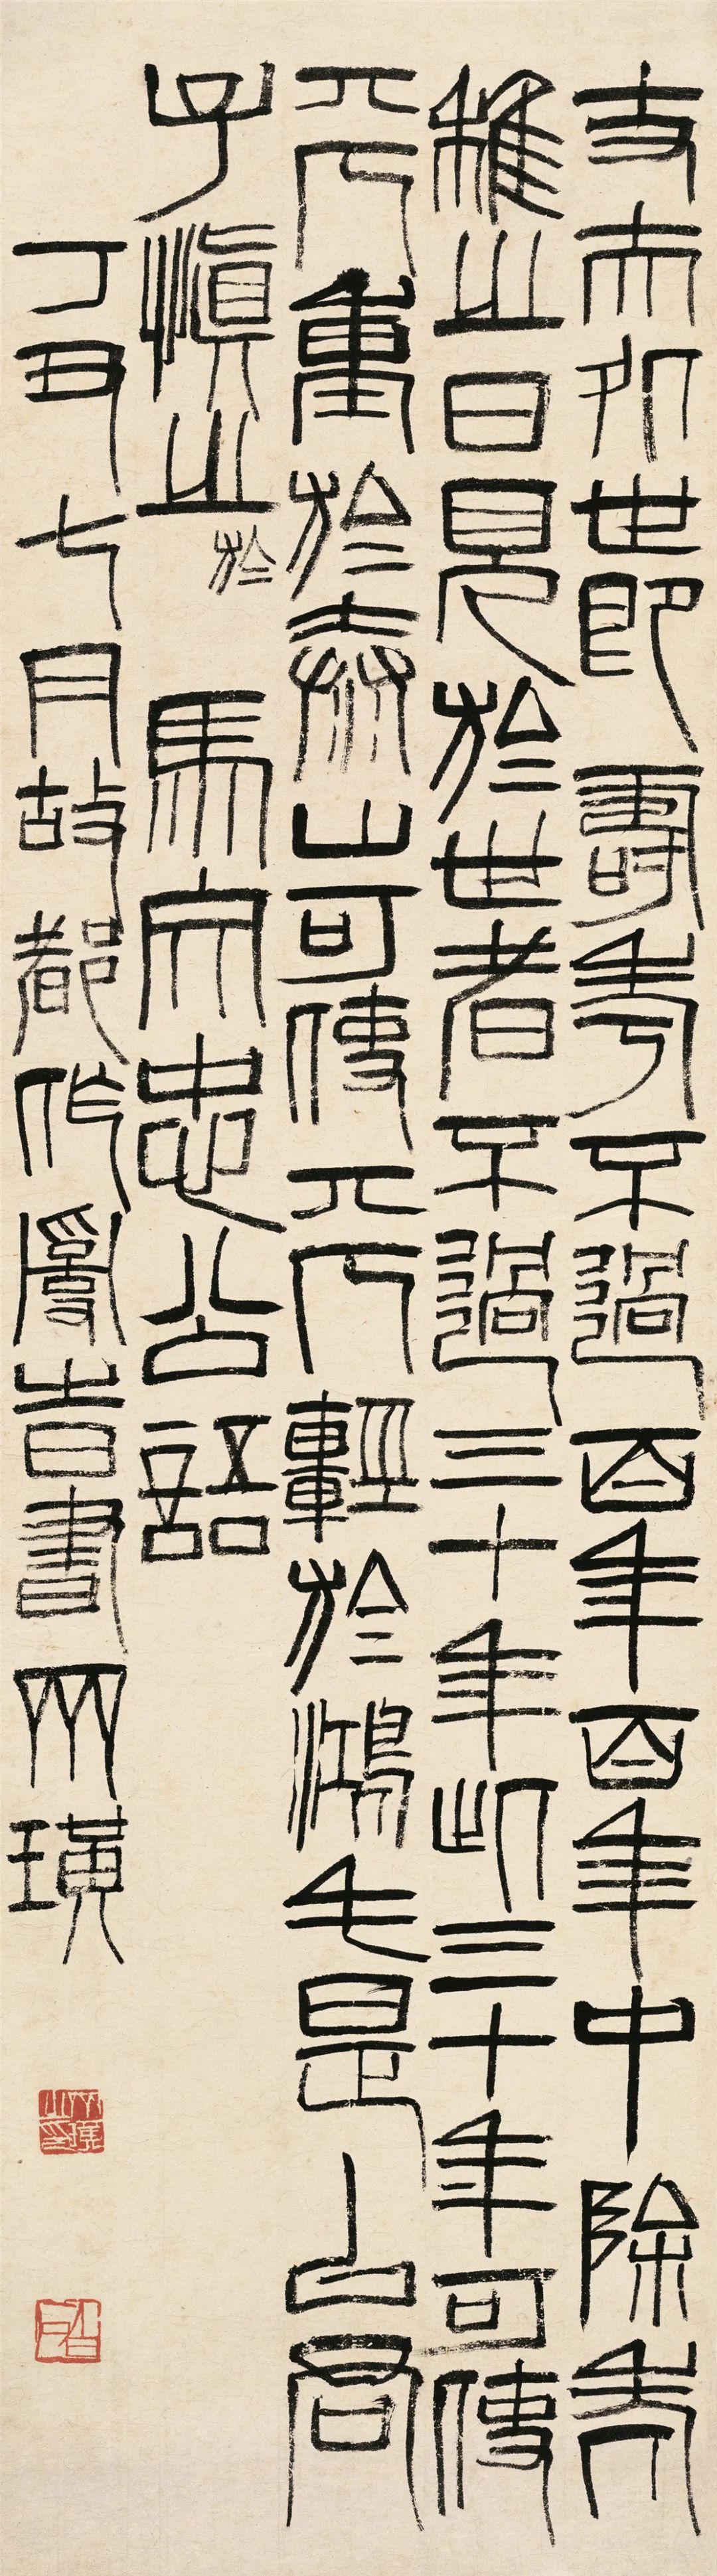 丈夫処世即壽考不過百年百年中除老
稚之日見於世者不過三十年此三十年可使
其重於泰山可使其輕於鴻毛是以君
子慎之 於 馬文忠公語
丁丑七月故都作亂旹書齊璜